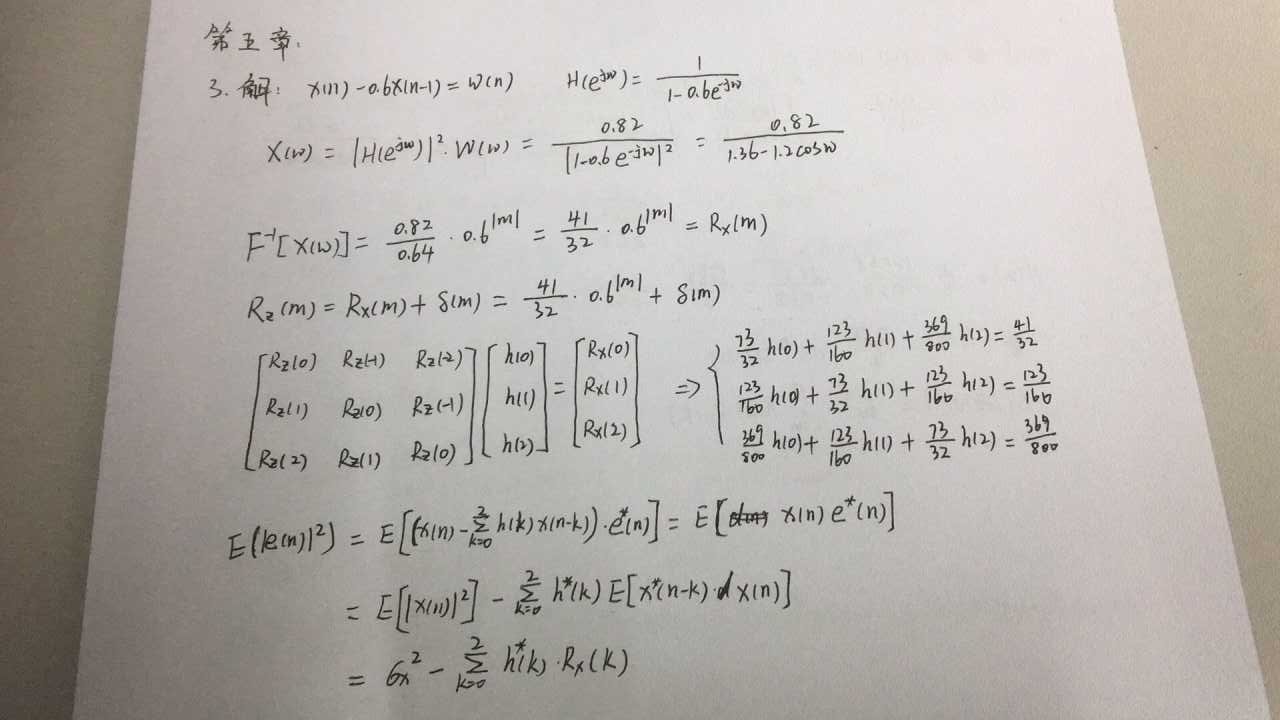 第五章.
3. 解: x(n)-0.6x(n-1)=w(n) H(e^{jw})=\frac{1}{1-0.6e^{-jw}}
X(w)=|H(e^{jw})|^2·W(w)=\frac{0.82}{|1-0.6e^{-jw}|^2}=\frac{0.82}{1.36-1.2cosw}
F^{-1}[X(w)]=\frac{0.82}{0.64}·0.6^{|m|}=\frac{41}{32}·0.6^{|m|}=R_x(m)
R_z(m)=R_x(m)+δ(m)=\frac{41}{32}·0.6^{|m|}+δ(m)
\begin{bmatrix}R_z(0)&R_z(-1)&R_z(-2)\\R_z(1)&R_z(0)&R_z(-1)\\R_z(2)&R_z(1)&R_z(0)\end{bmatrix}\begin{bmatrix}h(0)\\h(1)\\h(2)\end{bmatrix}=\begin{bmatrix}R_x(0)\\R_x(1)\\R_x(2)\end{bmatrix} ⇒ \begin{cases}\frac{73}{32}h(0)+\frac{123}{160}h(1)+\frac{369}{800}h(2)=\frac{41}{32}\\\frac{123}{160}h(0)+\frac{73}{32}h(1)+\frac{123}{160}h(2)=\frac{123}{160}\\\frac{369}{800}h(0)+\frac{123}{160}h(1)+\frac{73}{32}h(2)=\frac{369}{800}\end{cases}
E(|e(n)|^2)=E[(x(n)-\sum_{k=0}^{2}h(k)x(n-k))·e^*(n)]=E[x(n)e^*(n)]
=E[|x(n)|^2]-\sum_{k=0}^{2}h^*(k)E[x^*(n-k)·x(n)]
=σ_x^2-\sum_{k=0}^{2}h^*(k)·R_x(k)